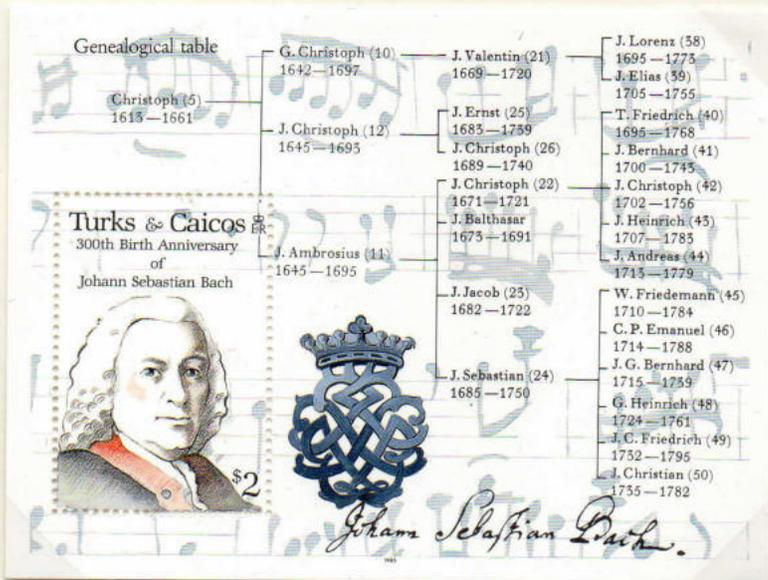 Genealogical table
Christoph (5)
1613—1661
G. Christoph (10)
1642—1697
J. Christoph (12)
1645—1693
J. Ambrosius (11)
1645—1695
J. Valentin (21)
1669—1720
J. Ernst (25)
1683—1739
J. Christoph (26)
1689—1740
J. Christoph (22)
1671—1721
J. Balthasar
1673—1691
J. Jacob (23)
1682—1722
J. Sebastian (24)
1685—1750
J. Lorenz (38)
1695—1773
J. Elias (39)
1705—1755
T. Friedrich (40)
1695—1768
J. Bernhard (41)
1700—1743
J. Christoph (42)
1702—1756
J. Heinrich (43)
1707—1783
J. Andreas (44)
1713—1779
W. Friedemann (45)
1710—1784
C. P. Emanuel (46)
1714—1788
J. G. Bernhard (47)
1715—1739
G. Heinrich (48)
1724—1761
J. C. Friedrich (49)
1732—1795
J. Christian (50)
1735—1782
Turks & Caicos
300th Birth Anniversary
of
Johann Sebastian Bach
$2
Johann Sebastian Bach.
1985